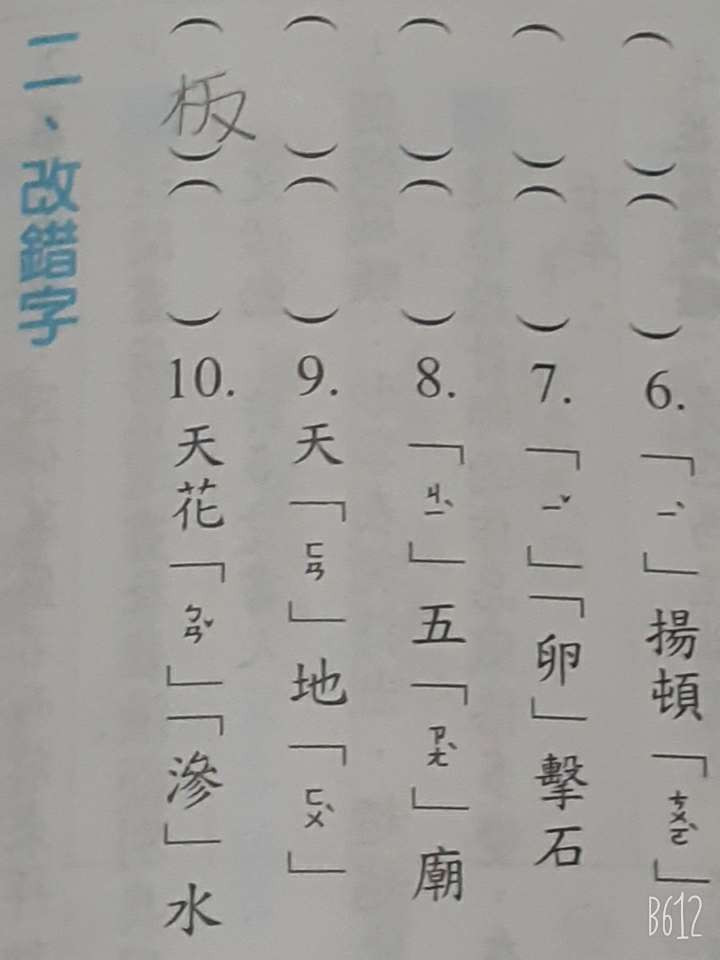 （　）（　）6.「ㄧˋ」揚頓「ㄘㄨㄛˋ」
（　）（　）7.「ㄧˇ」「卵」擊石
（　）（　）8.「ㄐㄧˋ」五「ㄗㄤˋ」廟
（　）（　）9.天「ㄈㄢ」地「ㄈㄨˋ」
（板）（　）10.天花「ㄅㄢˇ」「滲」水
二、改錯字
B612